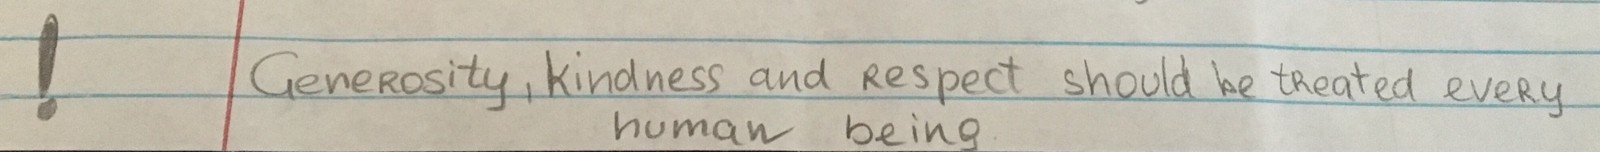 ! Generosity, kindness and respect should be treated every
human being